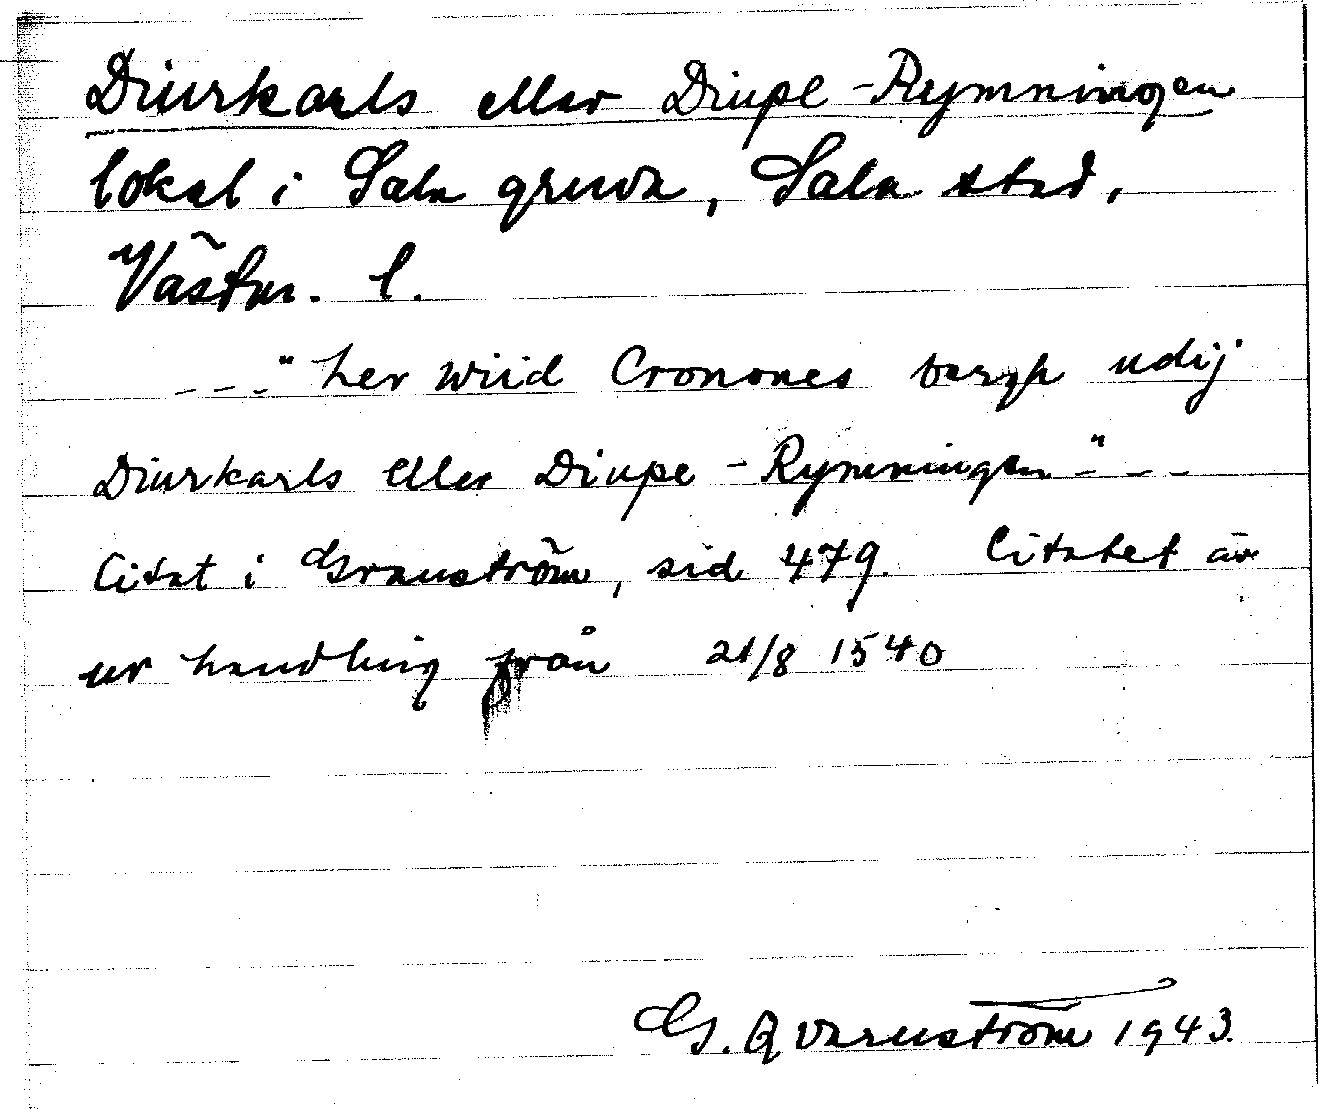 Diurkarls eller Diupe-Rymningen
lokal i Sala gruva, Sala stad,
Västm. l.
---"her wiid Cronones bergh udij
Diurkarls eller Diupe-Rymningen"---
Citat i Granström, sid 479. Citatet är
ur handling från 21/8 1540
G. Qvarnström 1943.